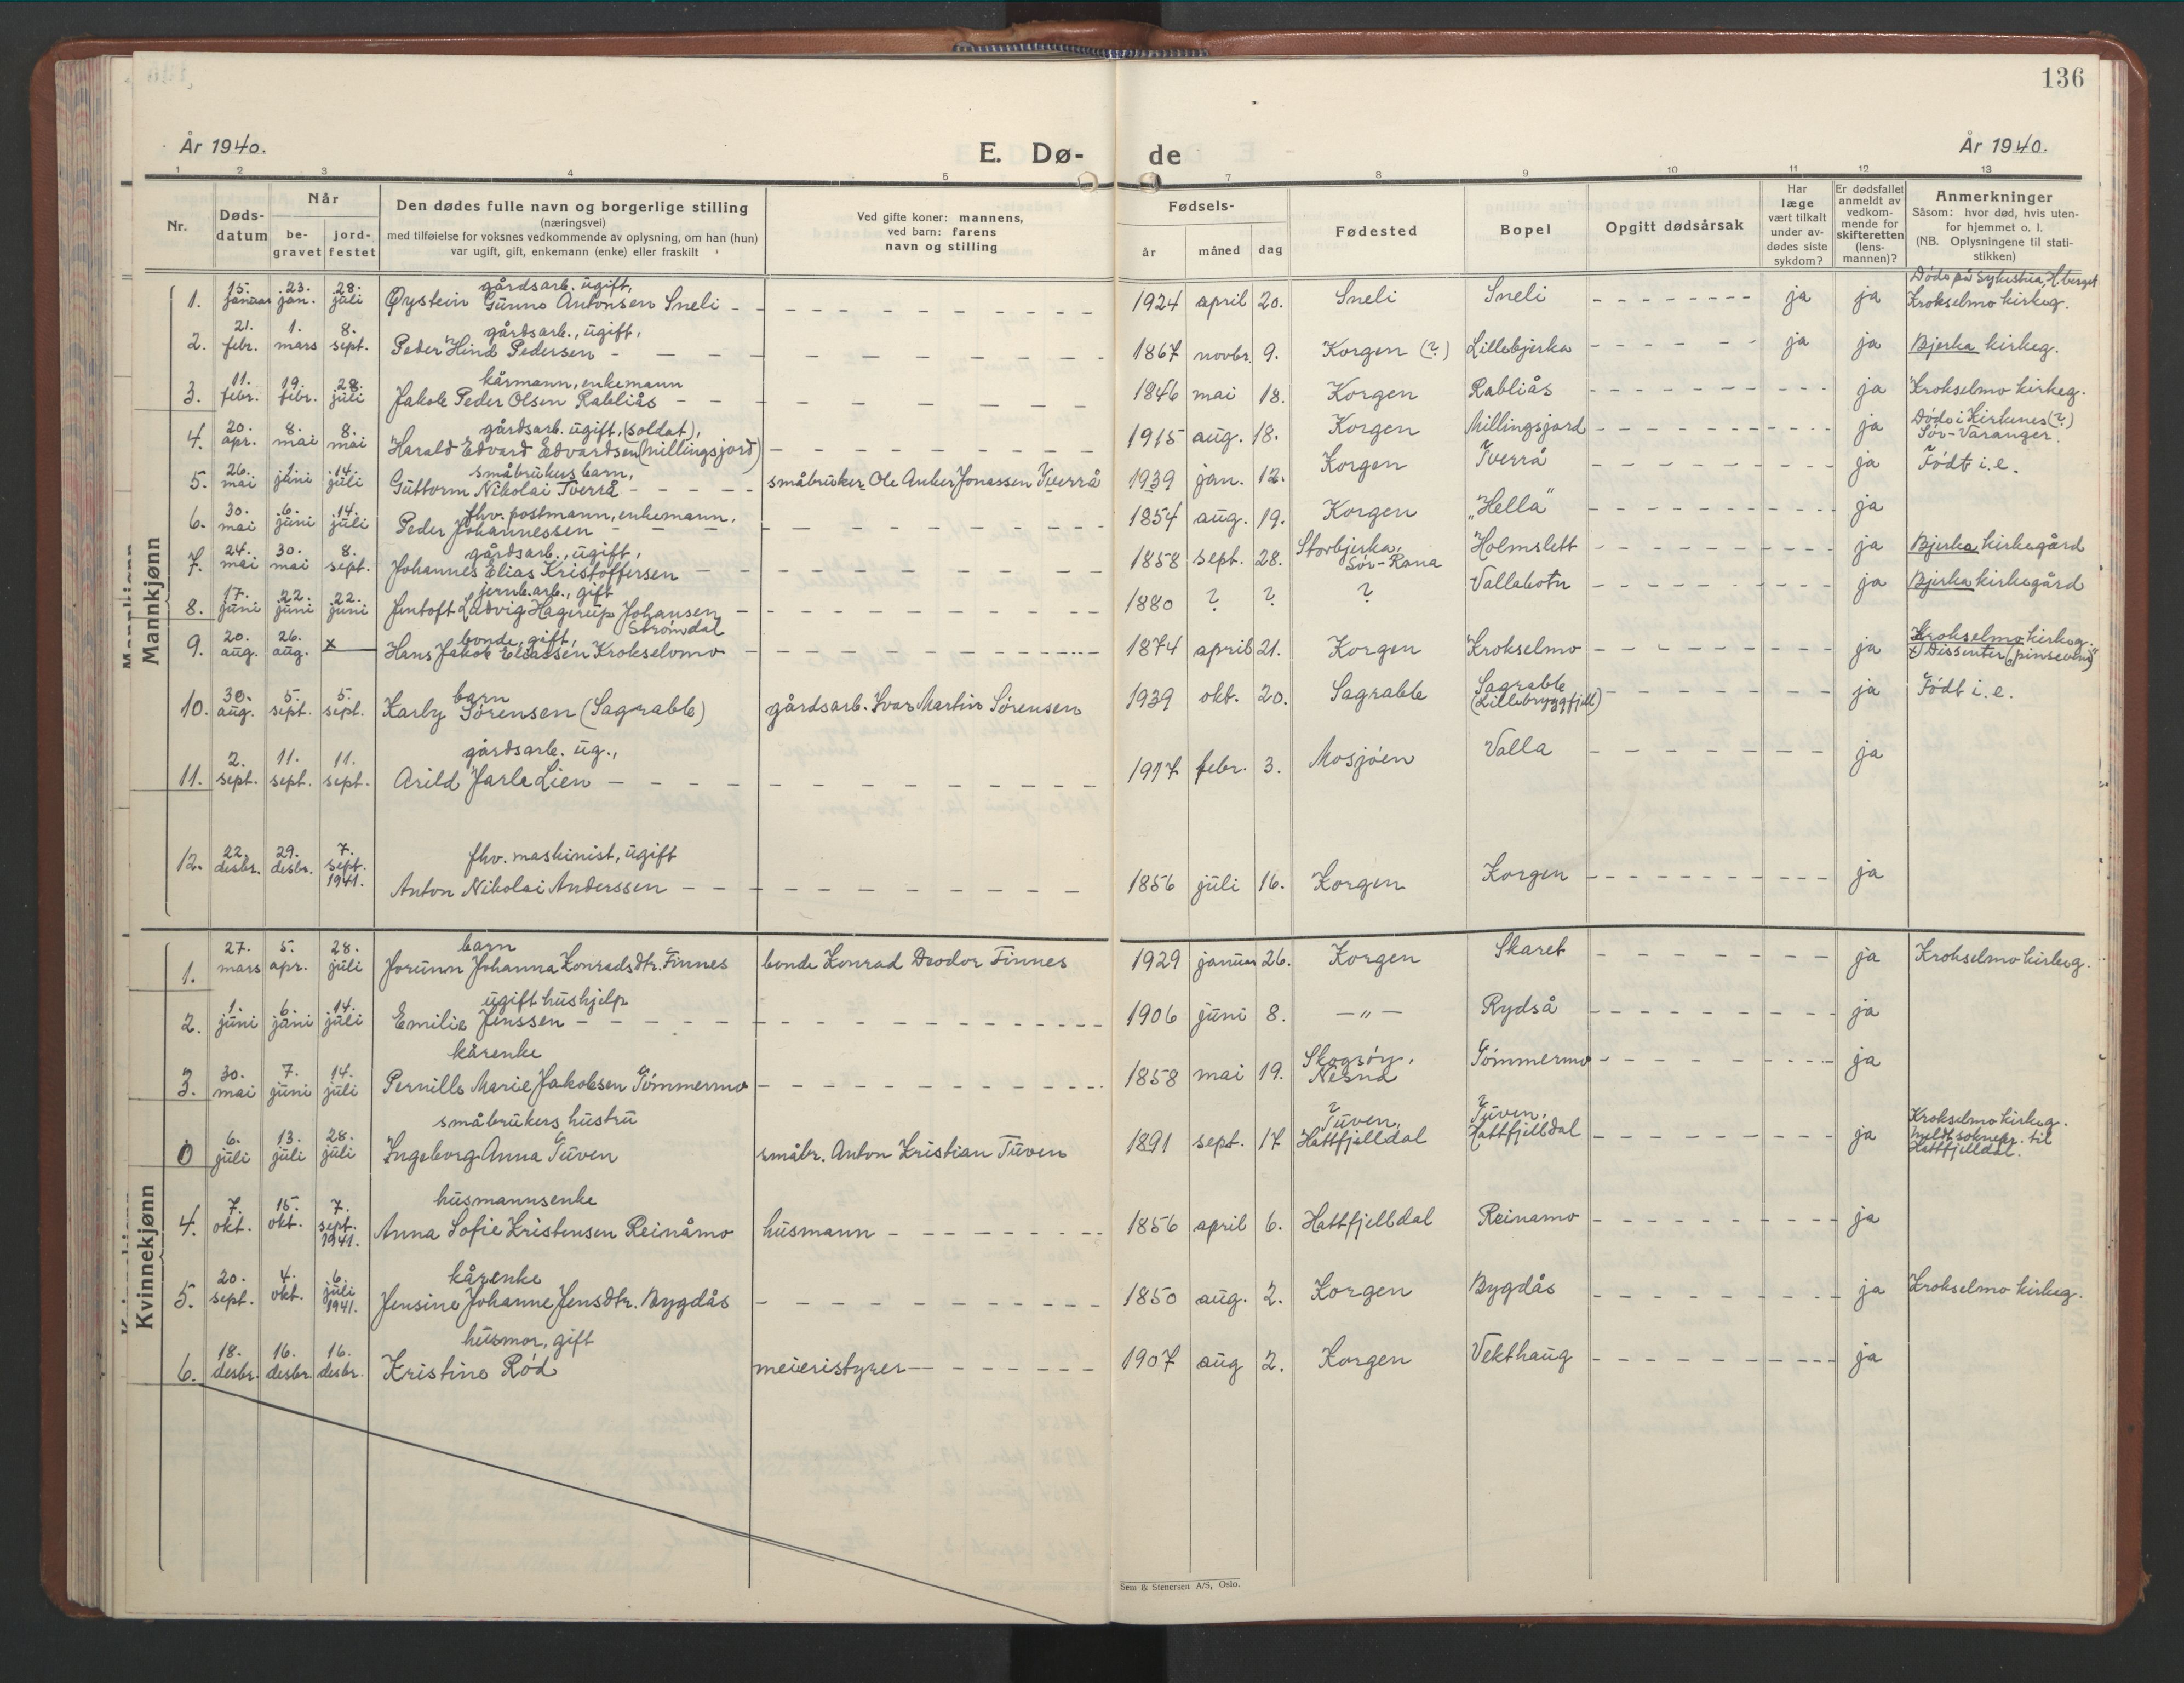 136
År 1940.
E. Dø-
de
År 1940.
1 2 3 4 5 7 8 9 10 11 12 13
Nr.
Døds-
datum
Når
be-
gravet
jord-
festet
Den dødes fulle navn og borgerlige stilling
(næringsvei)
med tilføielse for voksnes vedkommende av oplysning, om han (hun)
var ugift, gift, enkemann (enke) eller fraskilt
Ved gifte koner: mannens,
ved barn: farens
navn og stilling
Fødsels-
år
måned
dag
Fødested
Bopel
Opgitt dødsårsak
Har
læge
vært tilkalt
under av-
dødes siste
sykdom?
Er dødsfallet
anmeldt av
vedkom-
mende for
skifteretten
(lens-
mannen)?
Anmerkninger
Såsom: hvor død, hvis uten-
for hjemmet o. l.
(NB. Oplysningene til stati-
stikken)
Mannkjønn
15. 23. 28. gårdsarb. ugift, Døde på sykestua, H.berget
1. januar jan. juli Øystein Gunno Antonsen Sneli - - - - 1924 april 20. Sneli Sneli - - - - ja ja Krokselmo kirkeg.
21. 1. 8. gårdsarb., ugift,
2. febr. mars sept. Peder Hind Pedersen - - - - 1867 novbr. 9. Korgen (?) Lillebjerka - - - - ja ja Bjerka kirkeg.
11. 19. 28. kårmann, enkemann
3. febr. febr. juli Jakob Peder Olsen Rabliås - - - - 1846 mai 18. Korgen Rabliås - - - - ja Krokselmo kirkeg.
20. 8. 8. gårdsarb. ugift, (soldat), Døde i Kirkenes (?)
4. apr. mai mai Harald Edvard Edvardsen (Millingsjord) - - - - 1915 aug. 18. Korgen Millingsjord - - - - ja Sør-Varanger.
26. 1. 14. småbrukers barn,
5. mai juni juli Guttorm Nikolai Tverrå - - - - småbruker Ole Anker Jonassen Tverrå 1939 jan. 12. Korgen Tverrå - - - - ja Født i.e.
30. 6. 14. fhv. postmann, enkemann,
6. mai juni juli Peder Johannessen - - - - 1854 aug. 19. Korgen "Hella" - - - - ja
24. 30. 8. gårdsarb., ugift,
7. mai mai sept. Johannes Elias Kristoffersen - - - - 1858 sept. 28. Storbjerka, Sør-Rana Holmslett - - - - ja Bjerka kirkegård
17. 22. 22. jernb.arb., gift
8. juni juni juni Jentoft Ludvig Hagerup Johansen Strømdal - - - - 1880 ? ? ? Vallabotn - - - - ja Bjerka kirkegård
20. 26. bonde, gift, Krokselmo kirkeg.
9. aug. aug. x Hans Jakob Eliassen Krokselvmo - - - - 1874 april 21. Korgen Krokselmo - - - - ja x) Dissenter ("pinseven")
30. 5. 5. barn
10. aug. sept. sept. Karly Sørensen (Sagrabble) gårdsarb. Ivar Martin Sørensen 1939 okt. 20. Sagrabble Sagrabble (Lillebryggfjell) - - - - ja Født i.e.
2. 11. 11. gårdsarb. ug.,
11. sept. sept. sept. Arild Jarle Lien - - - - 1917 febr. 3. Mosjøen Valla - - - - ja
22. 29. 7. fhv. maskinist, ugift
12. desbr. desbr. sept. 1941. Anton Nikolai Anderssen - - - - 1856 juli 16. Korgen Korgen - - - - ja
Kvinnekjønn
27. 5. 28. barn
1. mars apr. juli Jorunn Johanna Konradsdtr. Finnes bonde Konrad Deodor Finnes 1929 januar 26. Korgen Skaret - - - - ja Krokselmo kirkeg.
1. 6. 14. ugift hushjelp
2. juni juni juli Emilie Jenssen - - - - 1906 juni 8. - " - Rydså - - - - ja
30. 7. 14. kårenke
3. mai juni juli Pernille Marie Jakobsen Tømmermo - - - - 1858 mai 19. Skogsøy, Nesna Tømmermo - - - - ja
6. 13. 28. småbrukers hustru Krokselmo kirkeg.
0 juli juli juli Ingeborg Anna Tuven småbr. Anton Kristian Tuven 1891 sept. 17 Tuven, Hattfjelldal Tuven, Hattfjelldal - - - - ja meldt soknepr. til Hattfjelldal.
7. 15. 7. husmannsenke
4. okt. okt. sept. 1941. Anna Sofie Kristensen Reinåmo husmann - - - - 1856 april 6. Hattfjelldal Reinamo - - - - ja
20. 4. 6. kårenke
5. sept. okt. juli 1941. Jensine Johanne Jensdtr. Bygdås - - - - 1850 aug. 2. Korgen Bygdås - - - - ja Krokselmo kirkeg.
18. 16. 16. husmor, gift
6. desbr. desbr. desbr. Kristine Rød meieristyrer - - - - 1907 aug 2. Korgen Vekthaug - - - - ja
Sem & Stenersen A/S, Oslo.